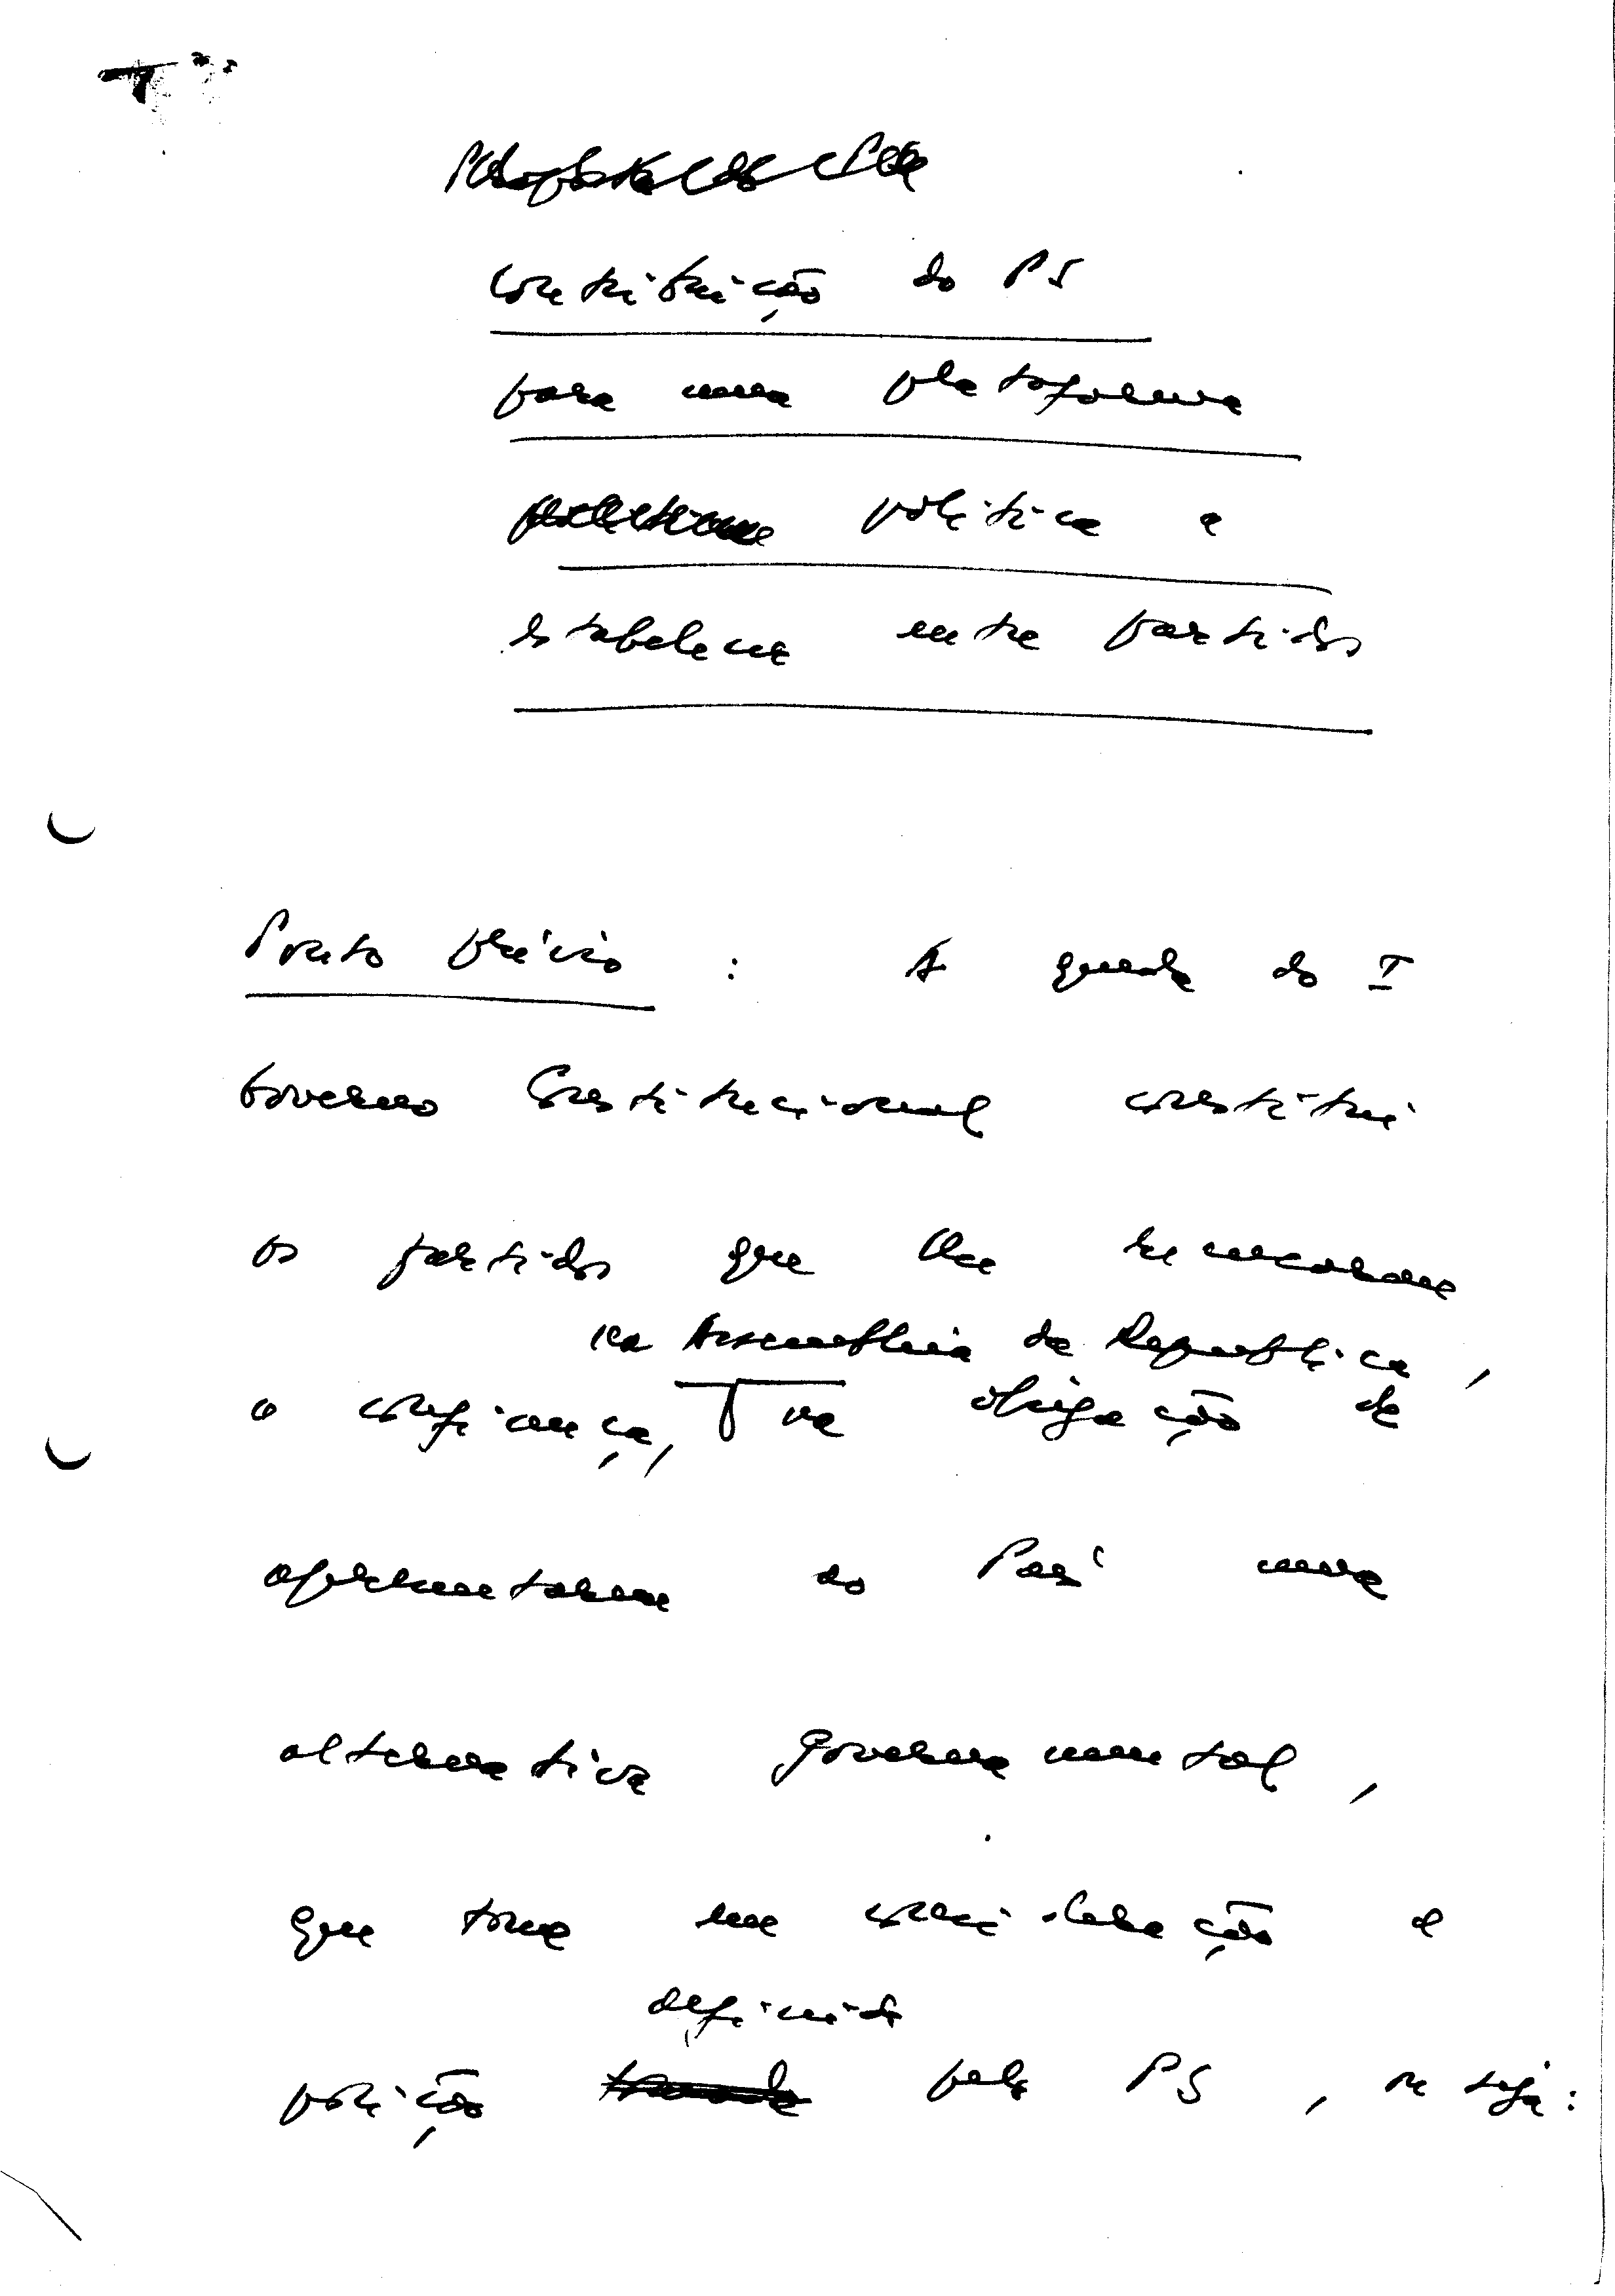 Contribuição do PS
para uma plataforma
política a
estabelecer entre partidos
Ponto prévio : A queda do I
Governo Constitucional constitui
os partidos que lhe recusaram
na Assembleia da República,
a confiança, na obrigação de
apresentarem ao País uma
alternativa governamental,
que tome em consideração a
definida
posição pelo PS, ou seja: